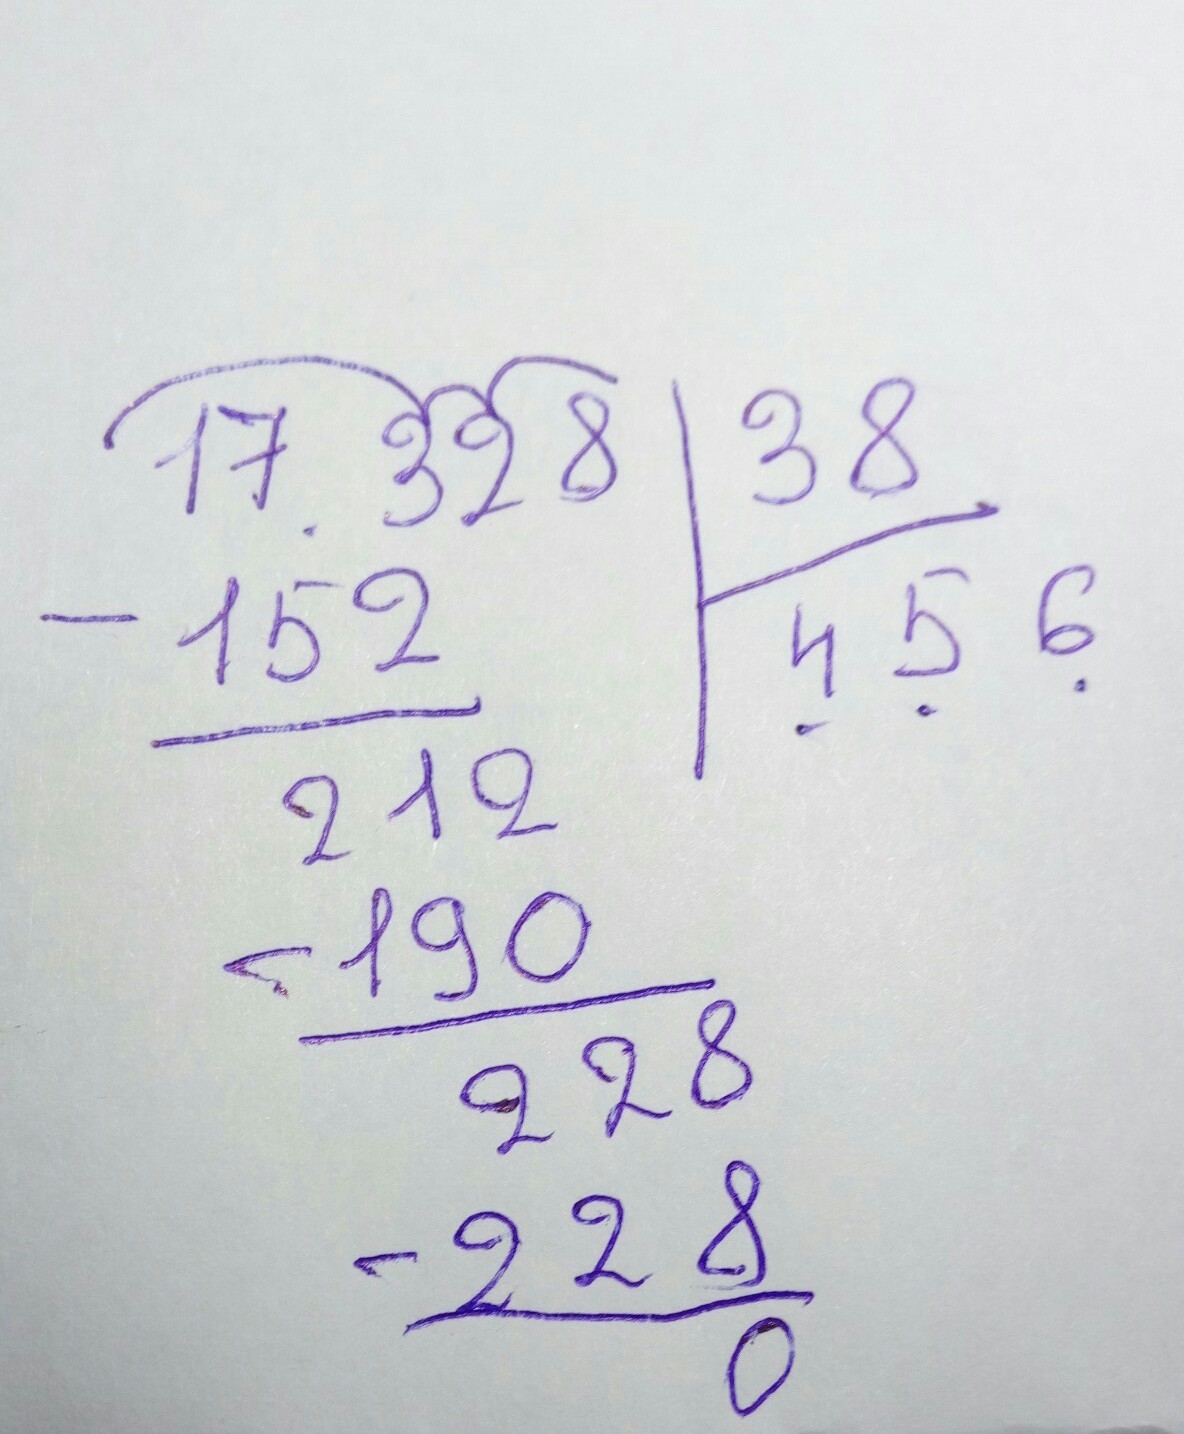 17.328 38
-152 456
212
-190
228
-228
0